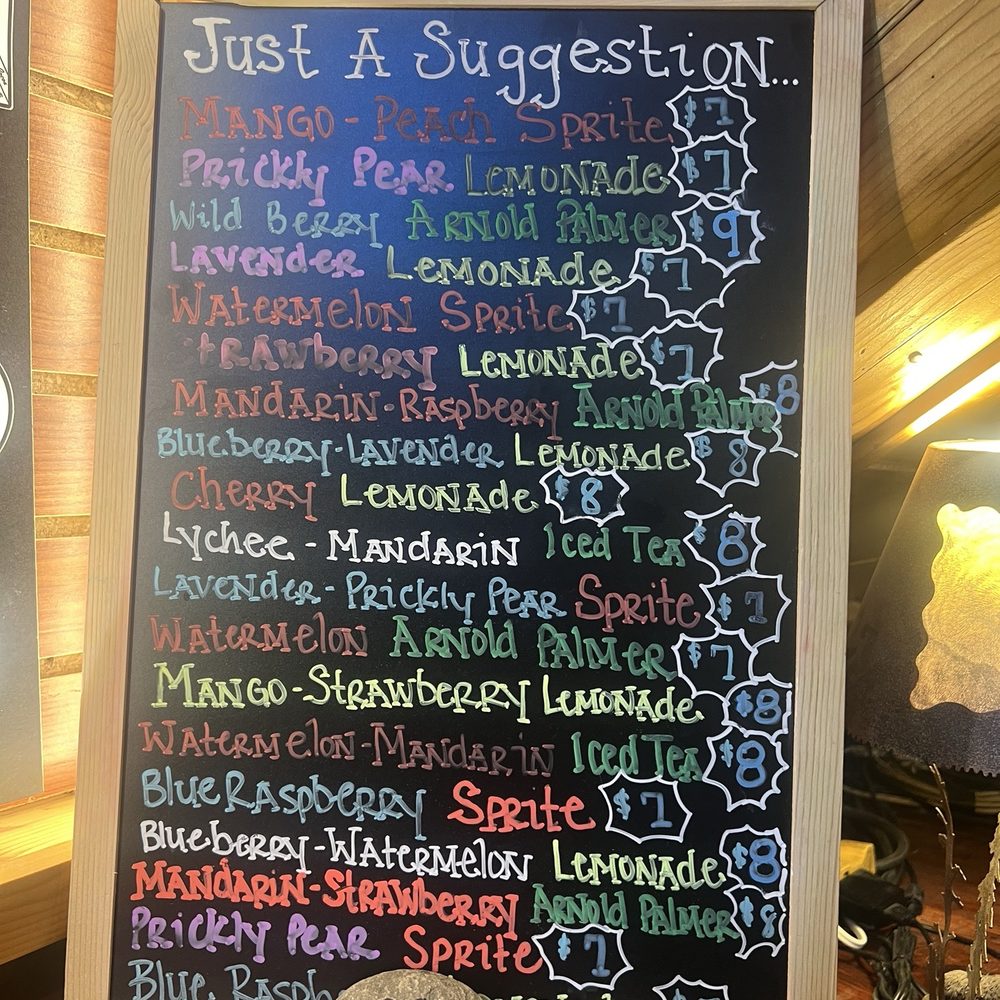 Just A Suggestion...
Mango - Peach Sprite $7
Prickly Pear Lemonade $7
Wild Berry Arnold Palmer $9
Lavender Lemonade $7
Watermelon Sprite $7
trawberry Lemonade $7
Mandarin-Raspberry Arnold Palmer $8
Blueberry-Lavender Lemonade $8
Cherry Lemonade $8
Lychee - Mandarin Iced Tea $8
Lavender-Prickly Pear Sprite $7
Watermelon Arnold Palmer $7
Mango-Strawberry Lemonade $8
Watermelon-Mandarin Iced Tea $8
Blue Raspberry Sprite $7
Blueberry-Watermelon Lemonade $8
Mandarin-Strawberry Arnold Palmer $8
Prickly Pear Sprite $7
Blue Raspb